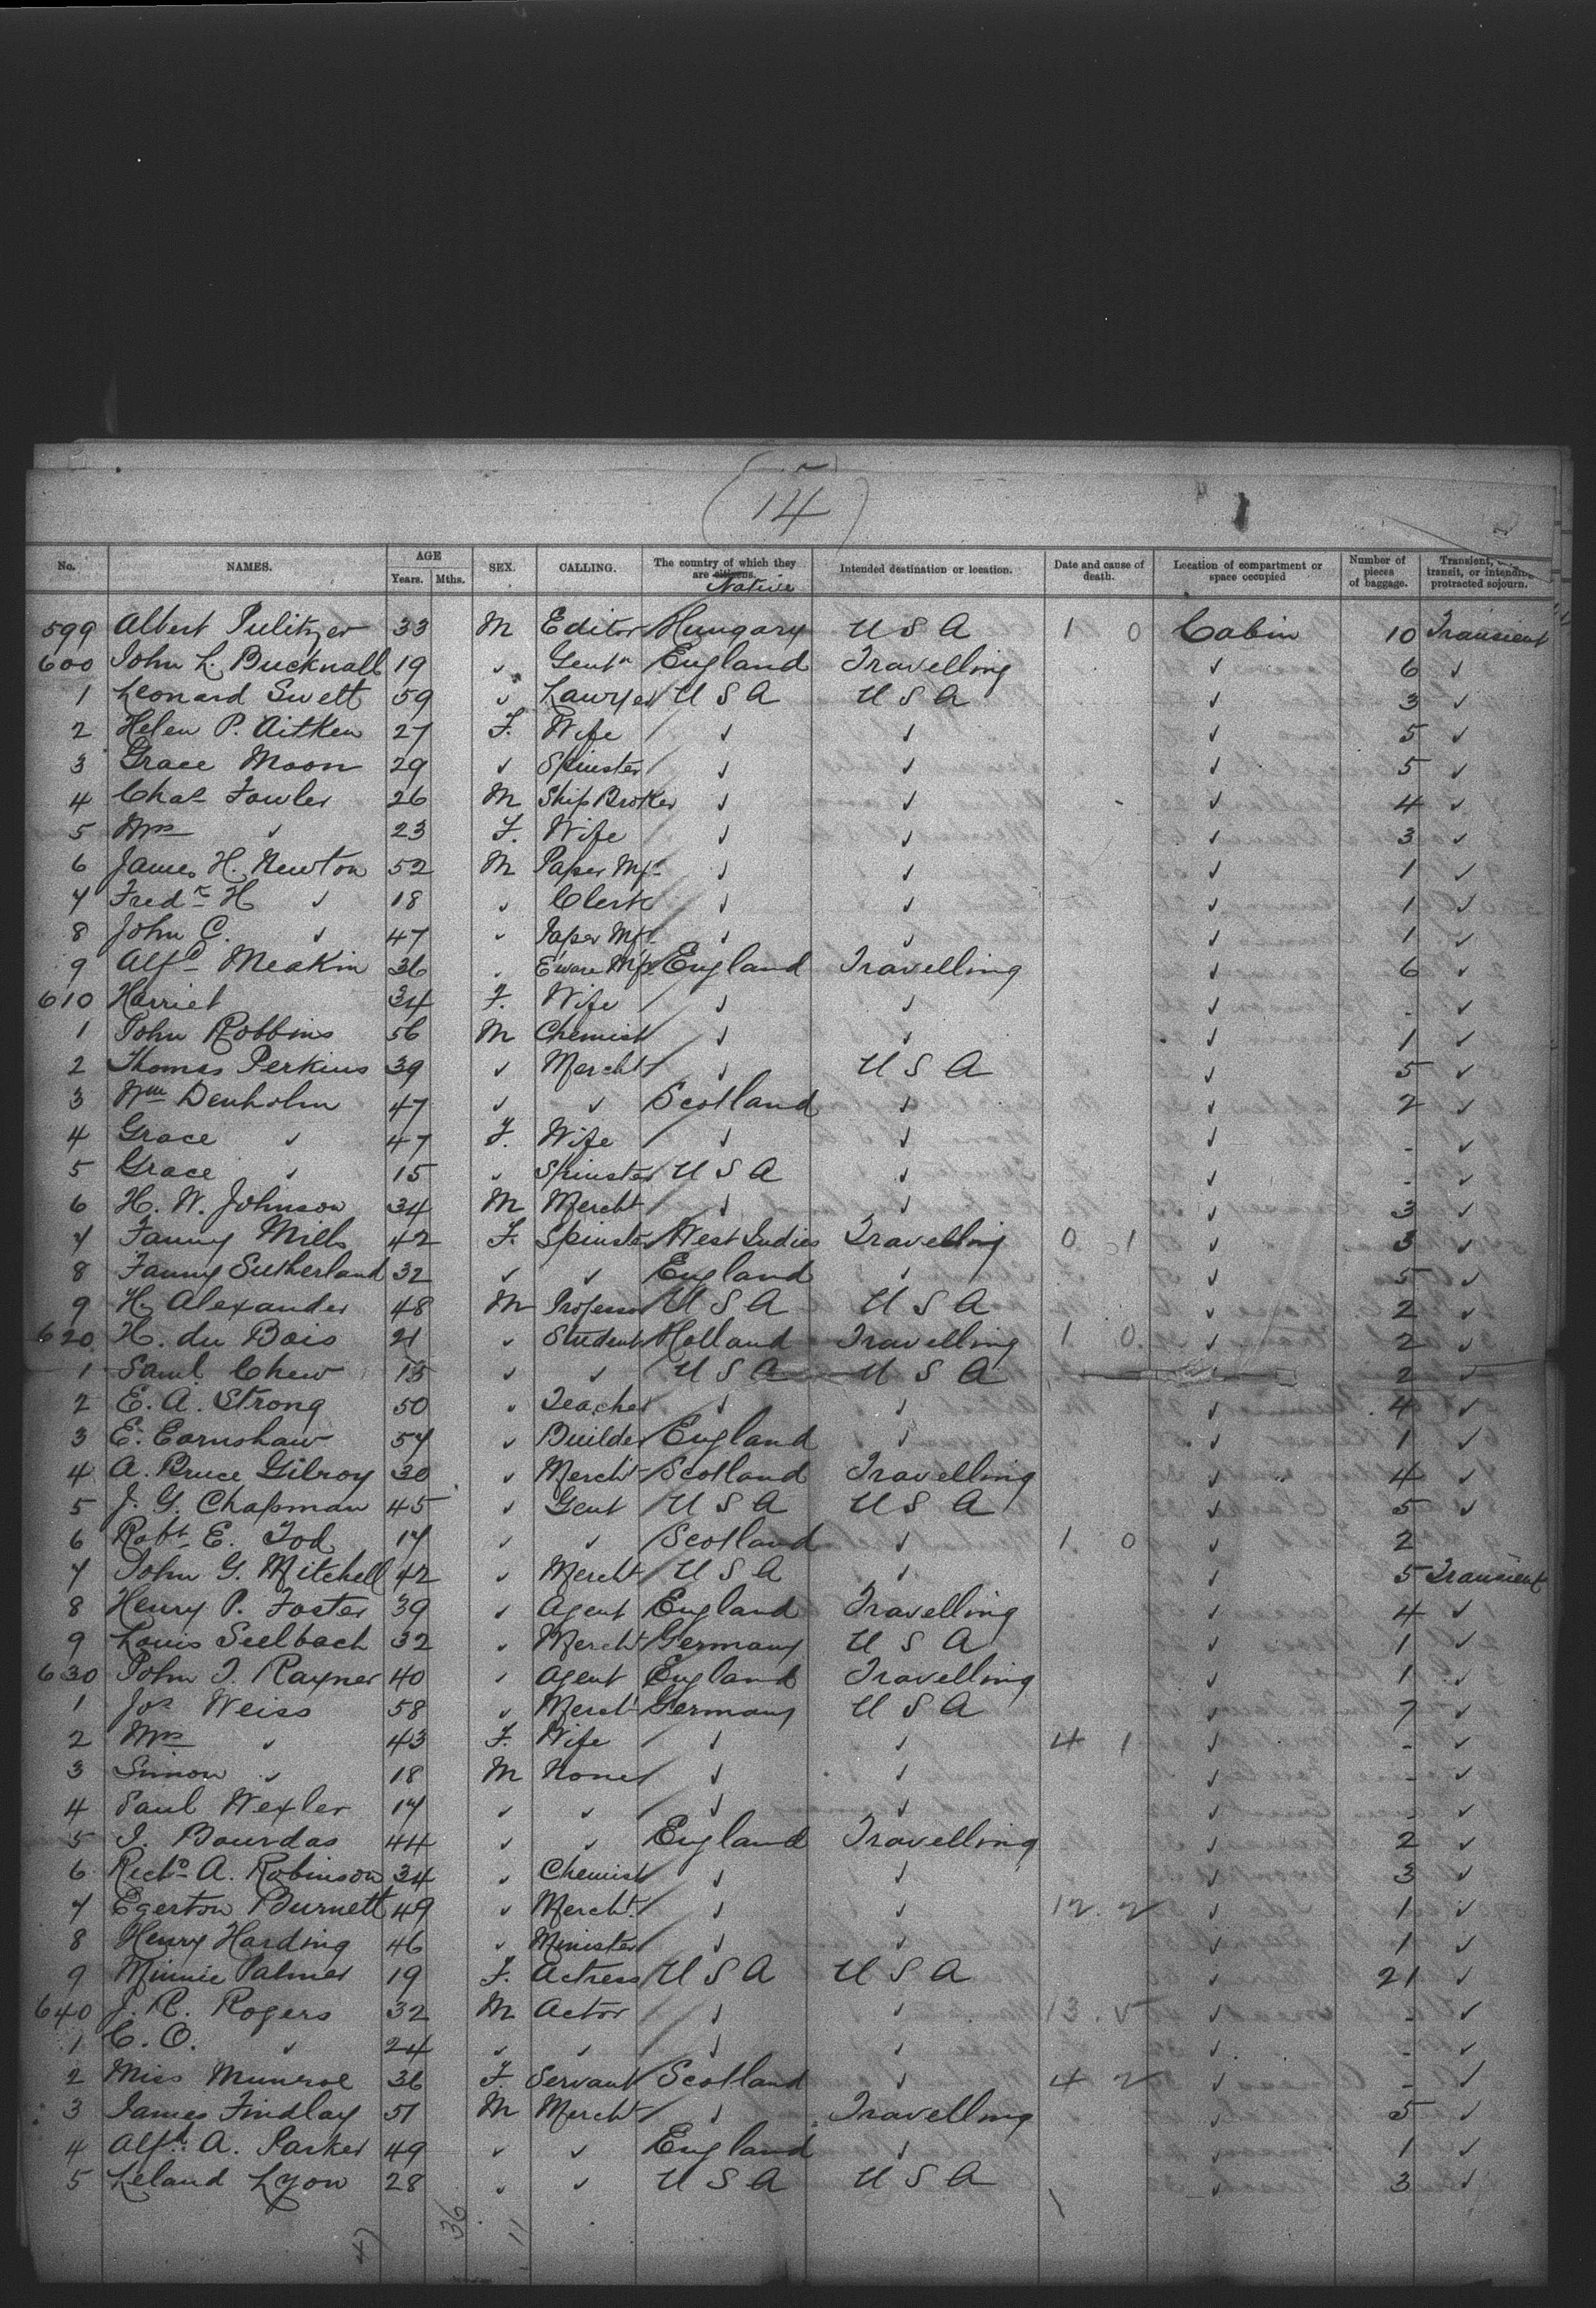 (14)
No. NAMES. AGE Years. Mths. SEX. CALLING. The country of which they are citizens. Native Intended destination or location. Date and cause of death. Location of compartment or space occupied Number of pieces of baggage. Transient, transit, or intending protracted sojourn.
599 Albert Pulitzer 33 M Editor Hungary U S A 1 0 Cabin 10 Transient
600 John L. Bucknall 19 ✓ Gentn England Travelling ✓ 6 ✓
1 Leonard Swett 59 ✓ Lawyer U S A U S A ✓ 3 ✓
2 Helen P. Aitken 27 F. Wife ✓ ✓ ✓ 5 ✓
3 Grace Moon 29 ✓ Spinster ✓ ✓ ✓ 5 ✓
4 Chas Fowler 26 M Ship Broker ✓ ✓ ✓ 4 ✓
5 Mrs ✓ 23 F. Wife ✓ ✓ ✓ 3 ✓
6 James H. Newton 52 M Paper Mfr ✓ ✓ ✓ 1 ✓
7 Fredk H ✓ 18 ✓ Clerk ✓ ✓ ✓ 1 ✓
8 John C. ✓ 47 ✓ Paper Mfr ✓ ✓ ✓ 1 ✓
9 Alfd Meakin 36 ✓ E'ware Mfr England Travelling ✓ 6 ✓
610 Harriet 34 F. Wife ✓ ✓ ✓ - ✓
1 John Robbins 56 M Chemist ✓ ✓ ✓ 1 ✓
2 Thomas Perkins 39 ✓ Mercht ✓ U S A ✓ 5 ✓
3 Wm Denholm 47 ✓ ✓ Scotland ✓ ✓ 2 ✓
4 Grace ✓ 47 F. Wife ✓ ✓ ✓ - ✓
5 Grace ✓ 15 ✓ Spinster U S A ✓ ✓ - ✓
6 H. W. Johnson 34 M Mercht ✓ ✓ ✓ 3 ✓
7 Fanny Mills 42 F. Spinster West Indies Travelling 0 1 ✓ 3 ✓
8 Fanny Sutherland 32 ✓ ✓ England ✓ ✓ 5 ✓
9 H. Alexander 48 M Professor U S A U S A ✓ 2 ✓
620 H. du Bois 21 ✓ Student Holland Travelling 1 0 ✓ 2 ✓
1 Saml Chew 13 ✓ ✓ U S A U S A 2 ✓
2 E. A. Strong 50 ✓ Teacher ✓ ✓ ✓ 4 ✓
3 E. Earnshaw 57 ✓ Builder England ✓ ✓ 1 ✓
4 A. Bruce Gilroy 30 ✓ Mercht Scotland Travelling ✓ 4 ✓
5 J. G. Chapman 45 ✓ Gent U S A U S A ✓ 5 ✓
6 Robt E. Tod 17 ✓ ✓ Scotland ✓ 1 0 ✓ 2
7 John G. Mitchell 42 ✓ Mercht U S A ✓ ✓ 5 Transient
8 Henry P. Foster 39 ✓ Agent England Travelling ✓ 4 ✓
9 Louis Seelbach 32 ✓ Mercht Germany U S A ✓ 1 ✓
630 John T. Rayner 40 ✓ Agent England Travelling ✓ 1 ✓
1 Jos Weiss 58 ✓ Mercht Germany U S A ✓ 7 ✓
2 Mrs ✓ 43 F. Wife ✓ ✓ 4 1 ✓ - ✓
3 Simon ✓ 18 M None ✓ ✓ ✓ - ✓
4 Paul Wexler 17 ✓ ✓ ✓ ✓ ✓ - ✓
5 J. Bourdas 44 ✓ ✓ England Travelling ✓ 2 ✓
6 Richd A. Robinson 34 ✓ Chemist ✓ ✓ ✓ 3 ✓
7 Egerton Burnett 49 ✓ Mercht. ✓ ✓ 12. 2 ✓ 1 ✓
8 Henry Harding 46 ✓ Minister ✓ ✓ ✓ 1 ✓
9 Minnie Palmer 19 F. Actress U S A U S A ✓ 21 ✓
640 J. R. Rogers 32 M Actor ✓ ✓ 13. 5 ✓ - ✓
1 C. O. ✓ 24 ✓ ✓ ✓ ✓ ✓ - ✓
2 Miss Munroe 36 F. Servant Scotland ✓ 4 2 ✓ - ✓
3 James Findlay 51 M Mercht ✓ Travelling ✓ 5 ✓
4 Alfd. A. Parker 49 ✓ ✓ England ✓ ✓ 1 ✓
5 Leland Lyon 28 ✓ ✓ U S A U S A ✓ 3 ✓
36 11